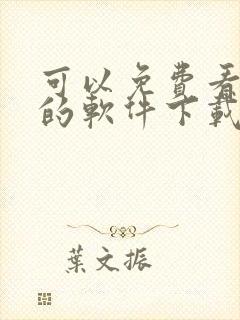 可以免費看
的軟件下載
葉文振